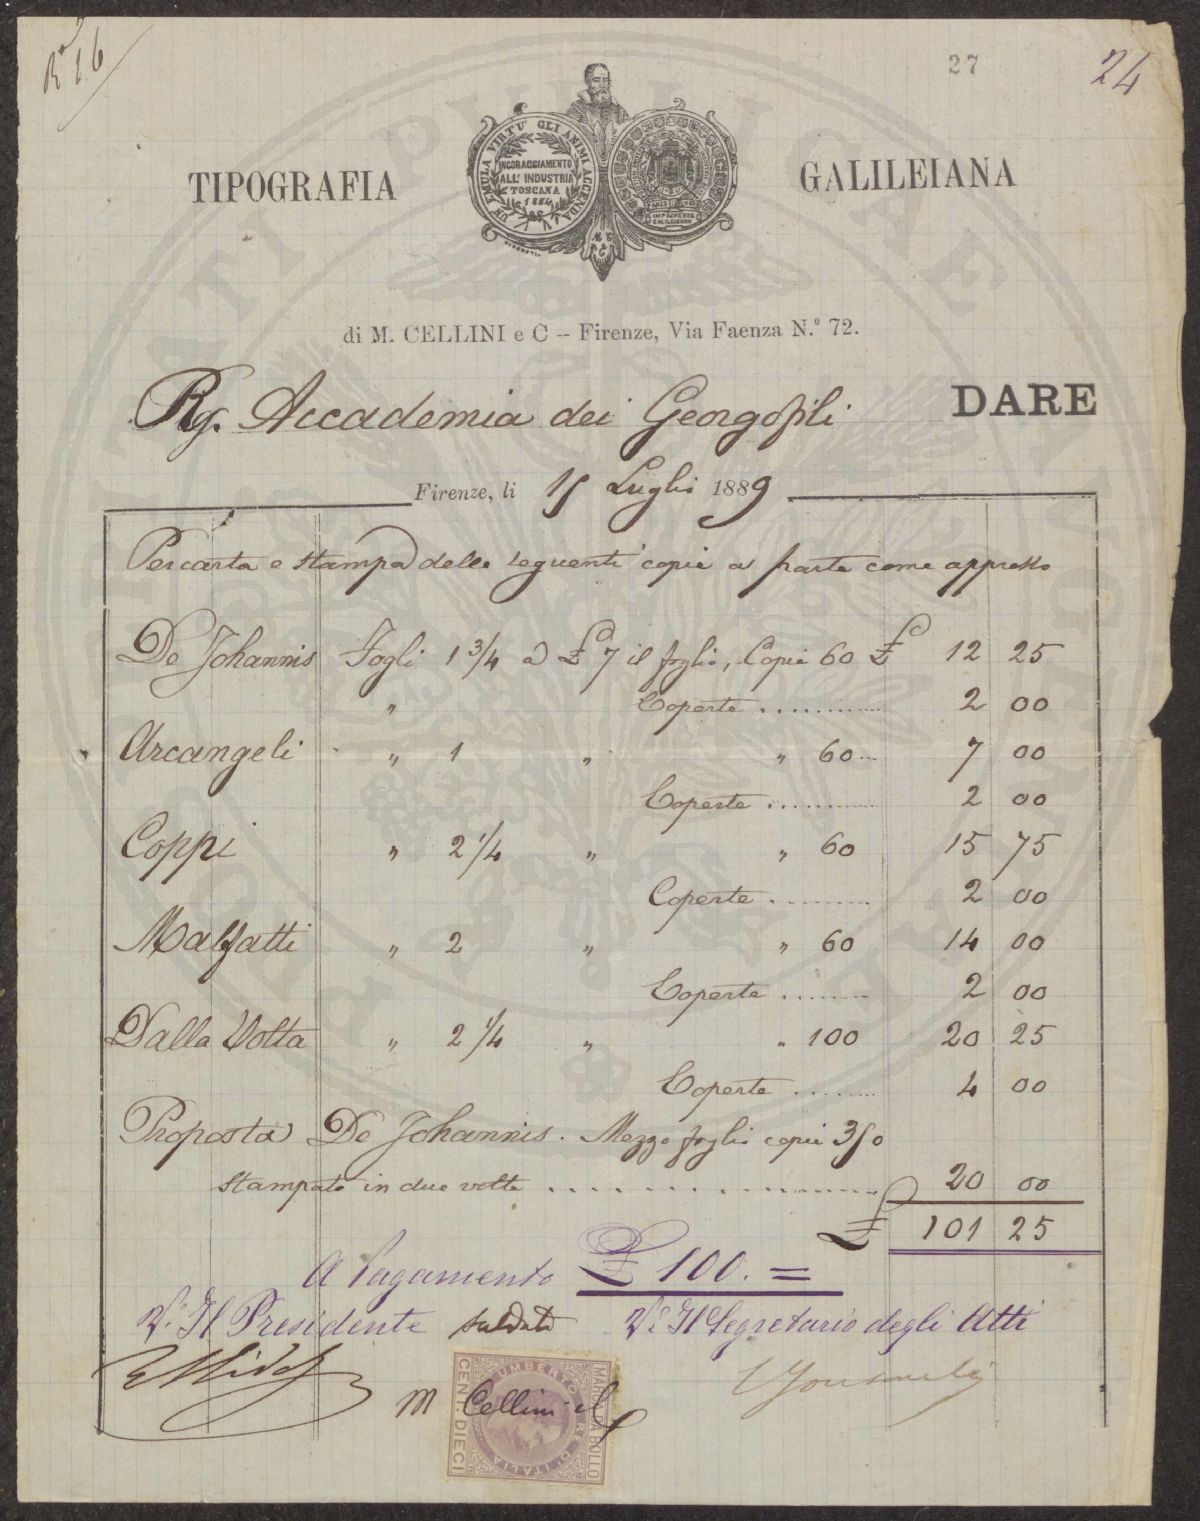 27
24
TIPOGRAFIA GALILEIANA
UN'EMULA VIRTU' GLI ANIMI ACCENDA
INCORAGGIAMENTO
ALL' INDUSTRIA
TOSCANA
1854
IMPRIMERIE
GALILEIENNE
di M. CELLINI e C – Firenze, Via Faenza N.° 72.
Rg. Accademia dei Georgofili DARE
Firenze, li 15 Luglio 1889
Per carta e stampa delle seguenti copie a parte come appresso
De Johannis Fogli 1 3/4 a £ 7 il foglio, Copie 60 £ 12 25
" Coperte .......... 2 00
Arcangeli " 1 " " 60 ... 7 00
Coperte .......... 2 00
Coppi " 2 1/4 " " 60 15 75
Coperte .......... 2 00
Malfatti " 2 " " 60 14 00
Coperte .......... 2 00
Dalla Volta " 2 1/4 " " 100 20 25
Coperte .......... 4 00
Proposta De Johannis. Mezzo foglio copie 350
stampato in due volte .......... 20 00
£ 101 25
A Pagamento £ 100. =
V.° Il Presidente saldato V.° Il Segretario degli Atti
M Cellini e C
UMBERTO I RE D'ITALIA
MARCA DA BOLLO
CENT. DIECI